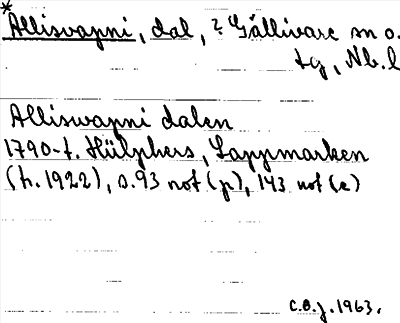 *Alliswapni, dal, ? Gällivare sn o.
tg, Nb. l
Alliswapni dalen
1790-t. Hülphers, Lappmarken
(h. 1922), s. 93 not (p), 143 not (e)
C.B.J. 1963.